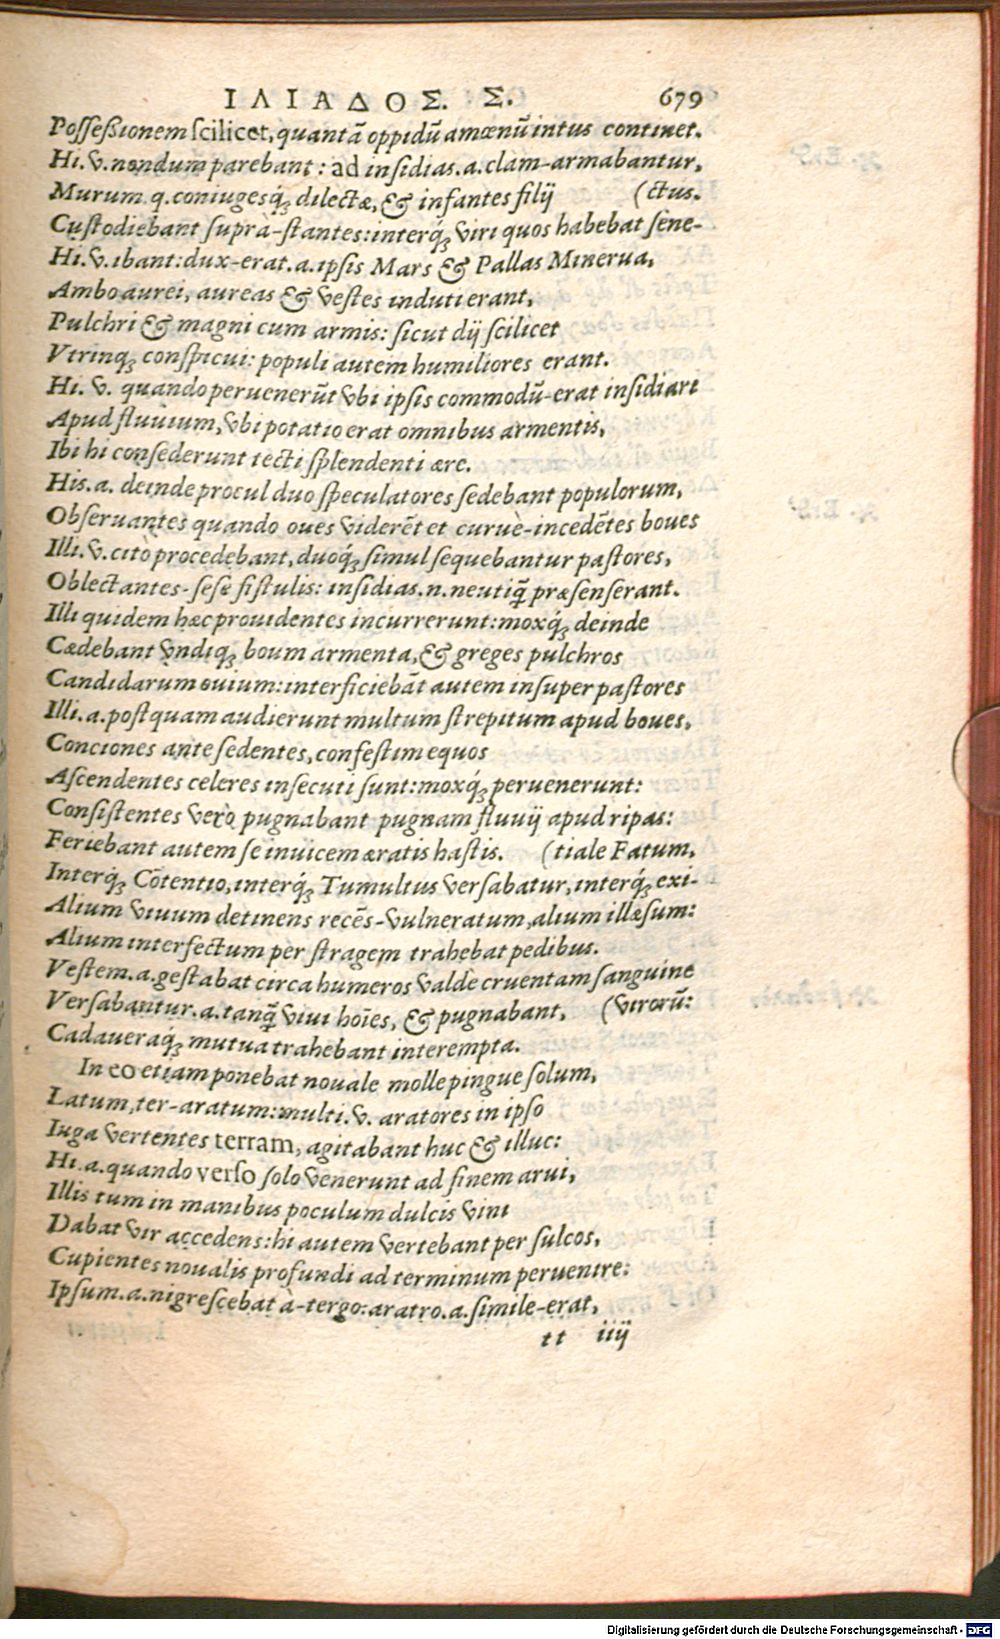 ΙΛΙΑΔΟΣ. Σ. 679
Possessionem scilicet, quantā oppidū amœnū intus continet.
Hi.v.nondum parebant: ad insidias.a.clam-armabantur,
Murum.q.coniugesq́; dilectæ, & infantes filij (ctus.
Custodiebant suprà-stantes: interq́; viri quos habebat sene-
Hi.v.ibant: dux-erat.a.ipsis Mars & Pallas Minerua,
Ambo aurei, aureas & vestes induti erant,
Pulchri & magni cum armis: sicut dij scilicet
Vtrinq; conspicui: populi autem humiliores erant.
Hi. v. quando peruenerūt vbi ipsis commodū-erat insidiari
Apud fluuium, vbi potatio erat omnibus armentis,
Ibi hi consederunt tecti splendenti ære.
His.a. deinde procul duo speculatores sedebant populorum,
Obseruantes quando oues viderēt et curuè-incedētes boues
Illi.v.citò procedebant, duoq́; simul sequebantur pastores,
Oblectantes-sese fistulis: insidias.n.neutiq̄ præsenserant.
Illi quidem hæc prouidentes incurrerunt: moxq́; deinde
Cædebant vndiq; boum armenta, & greges pulchros
Candidarum ouium: interficiebāt autem insuper pastores
Illi.a.postquam audierunt multum strepitum apud boues,
Conciones ante sedentes, confestim equos
Ascendentes celeres insecuti sunt: moxq́; peruenerunt:
Consistentes vero pugnabant pugnam fluuij apud ripas:
Feriebant autem se inuicem æratis hastis. (tiale Fatum,
Interq́; Cōtentio, interq́; Tumultus versabatur, interq́; exi-
Alium viuum detinens recēs-vulneratum, alium illæsum:
Alium interfectum per stragem trahebat pedibus.
Vestem.a.gestabat circa humeros valde cruentam sanguine
Versabantur.a.tanq̄ viui hoīes, & pugnabant, (virorū:
Cadaueraq́; mutua trahebant interempta.
In eo etiam ponebat nouale molle pingue solum,
Latum, ter-aratum: multi.v. aratores in ipso
Iuga vertentes terram, agitabant huc & illuc:
Hi.a.quando verso solo venerunt ad finem arui,
Illis tum in manibus poculum dulcis vini
Dabat vir accedens: hi autem vertebant per sulcos,
Cupientes noualis profundi ad terminum peruenire:
Ipsum.a.nigrescebat à-tergo: aratro.a.simile-erat,
tt iiij
Digitalisierung gefördert durch die Deutsche Forschungsgemeinschaft - DFG